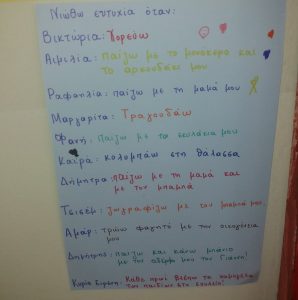 Νιώθω ευτυχία όταν:
Βικτώρια: Χορεύω
Αιμιλία: παίζω με το μονόκερο και
το αρκουδάκι μου
Ραφαηλία: παίζω με τη μαμά μου
Μαργαρίτα: Τραγουδάω
Φανή: Παίζω με τα σκυλάκια μου
Καιρά: κολυμπάω στη θάλασσα
Δήμητρα: παίζω με τη μαμά και
με τον μπαμπά
Τσισέμ: ζωγραφίζω με τον μπαμπά μου
Αμάρ: τρώω φαγητό με την οικογένεια
μου
Δημήτρης: παίζω και κάνω μπάνιο
με τον αδερφό μου τον Γιάννη!
Κυρία Ειρήνη: Κάθε πρωί βλέπω τα χαμόγελα
των παιδιών στο σχολείο!